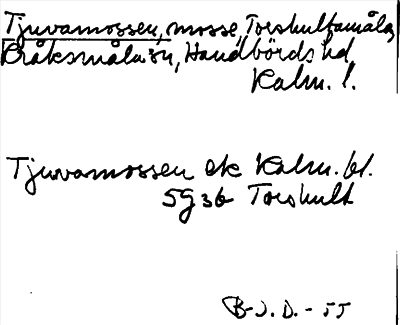 Tjuvamossen, mosse, Torshultamåla,
Bråksmåla sn, Handbörds hd
Kalm. l.
Tjuvamossen ek Kalm. bl.
5g3b Torshult
B-J.D. - 55